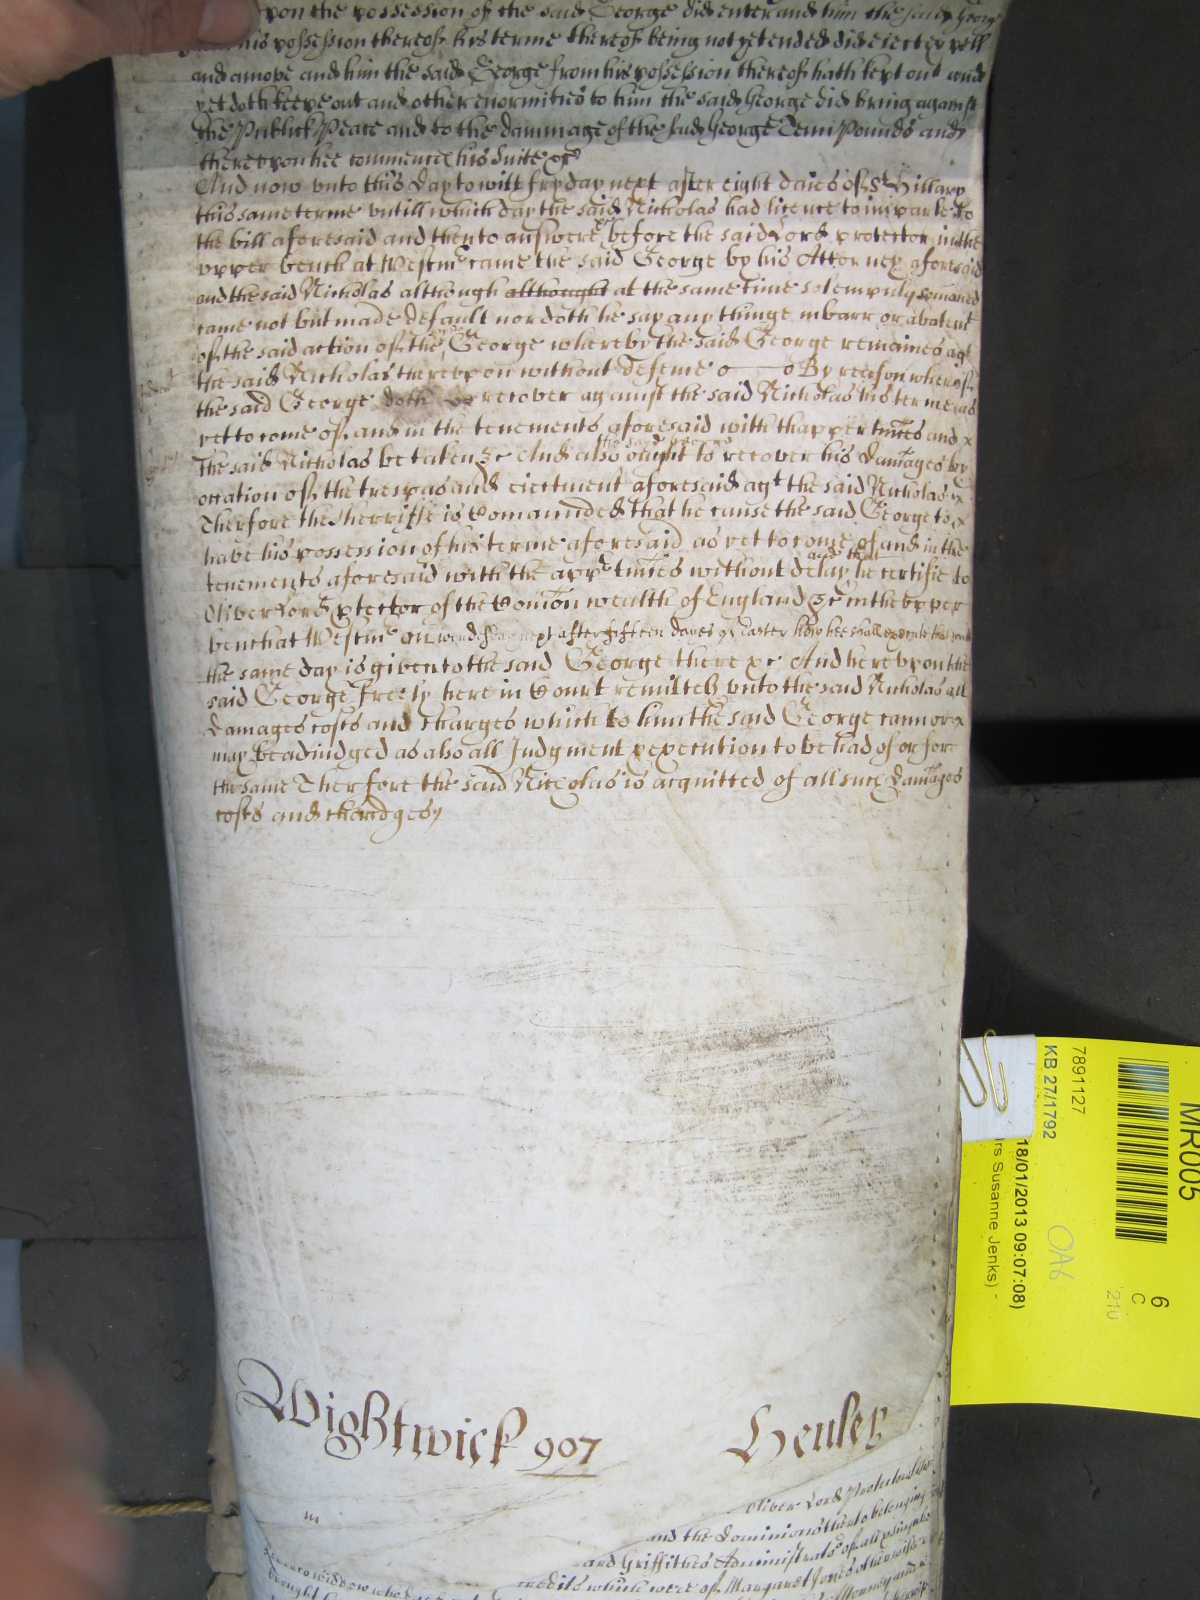 upon the possession of the said George did enter and him the said George
his possession thereof his terme thereof being not yet ended did eiect expell
and amove and him the said George from his possession thereof hath kept out and
yet doth keepe out and other enormities to him the said George did bring against
the Publick Peace and to the dammage of the said George Tenn Pounds and
thereupon hee commenced his Suite &c
And now unto this day to witt fryday next after eight daies of St Hillary
this same terme untill which day the said Nicholas had licence to imparle to
the bill aforesaid and then to answere &c before the said Lord protector in the
upper bench at Westmr came the said George by his Attorney aforesaid
and the said Nicholas although althought at the same time solempnly sumoned
came not but made default nor doth he say any thinge in barr or abatemt
of the said action of the said George whereby the said George remaines agt
the said Nicholas thereupon without defence o o By reason whereof
the said George doth recover against the said Nicholas his terme as
yet to come of and in the tenements aforesaid with thappertnñces and x
The said Nicholas be taken &c And also the said George ought to recover his damages by
occation of the trespas and eiectment aforesaid agt the said Nicholas x
Therfore the Sherriffe is Comaunded that he cause the said George to x
have his possession of his terme aforesaid as yet to come of and in the
tenements aforesaid with the apprtnñces without delay and that he certifie to
Oliver Lord ptector of the Comon wealth of England &c in the upper
bench at Westmr on wendesday next after fifteen dayes of Easter how hee shall execute this writt
the same day is given to the said George there &c And hereupon the
said George freely here in Court remitteth unto the said Nicholas all
damages costs and charges which to him the said George can nor x
may be adiudged as also all Judgment & execution to be had of or for
the same Therfore the said Nicholas is acquitted of all such damages
costs and chardges
Wightwick 907 Henley
Oliver Lord Protector
and the Dominions thereto belonging
and Griffithes Administrator of all & singular
credits which were of Margarett Jones otherwise
widow who
brought Attorney and
MR005
7891127
KB 27/1792
18/01/2013 09:07:08)
rs Susanne Jenks) -
OA6
6
C
210